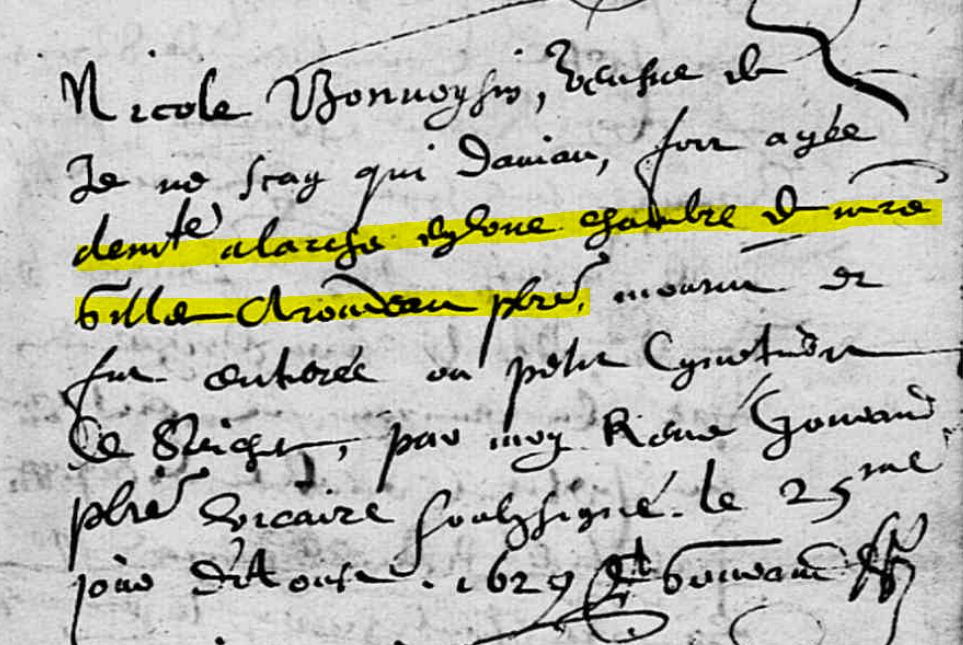 Nicole Bonvoysin, veufve de
Je ne scay qui Davian, fort agée
demte a larche en une chambre de mre
Gilles Chrondeau pbre, mourut et
fut enterée au petit Cymetiere
de Seiches, par moy René Gouraud
pbre vicaire soubzsigné. le 25me
jour d'Aoust. 1629